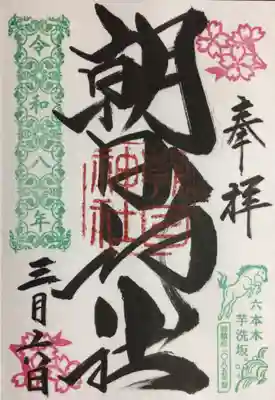 奉拝
六本木
芋洗坂
朝日神社
朝日神社
令和八年
三月六日